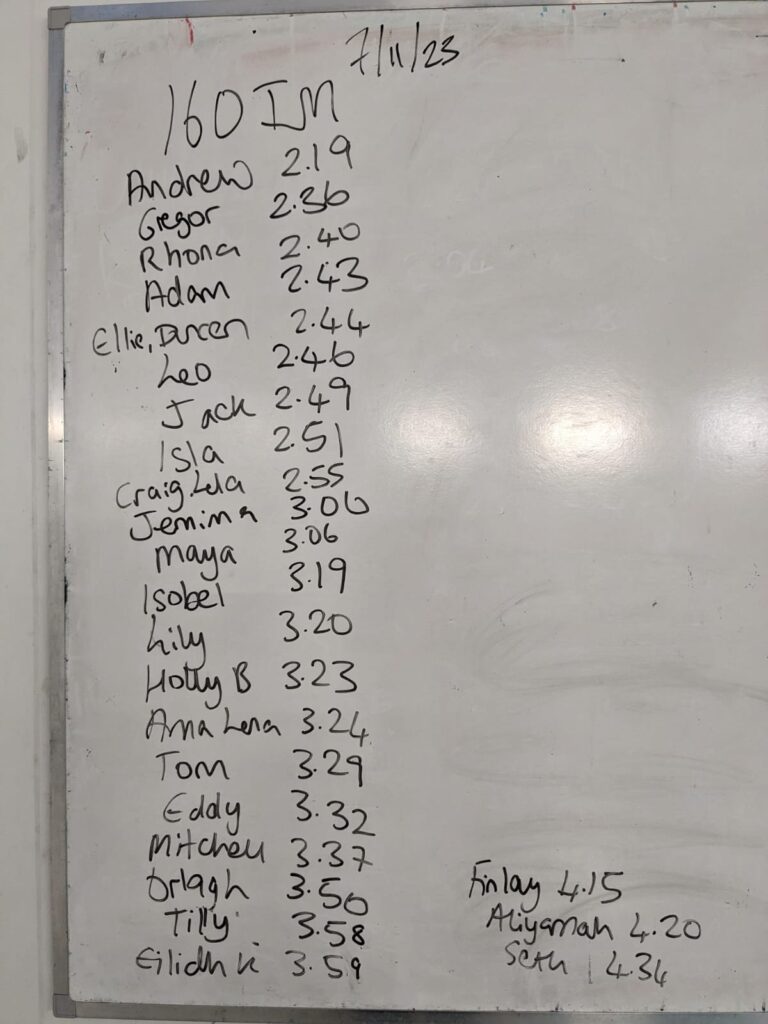 7/11/23
160 IM
Andrew 2.19
Gregor 2.36
Rhona 2.40
Adam 2.43
Ellie, Duncan 2.44
Leo 2.46
Jack 2.49
Isla 2.51
Craig, Lela 2.55
Jemima 3.00
Maya 3.06
Isobel 3.19
Lily 3.20
Holly B 3.23
Anna Lena 3.24
Tom 3.29
Eddy 3.32
Mitchell 3.37
Orlagh 3.50
Tilly 3.58
Eilidh K 3.59
Finlay 4.15
Aliyannah 4.20
Seth 4.34